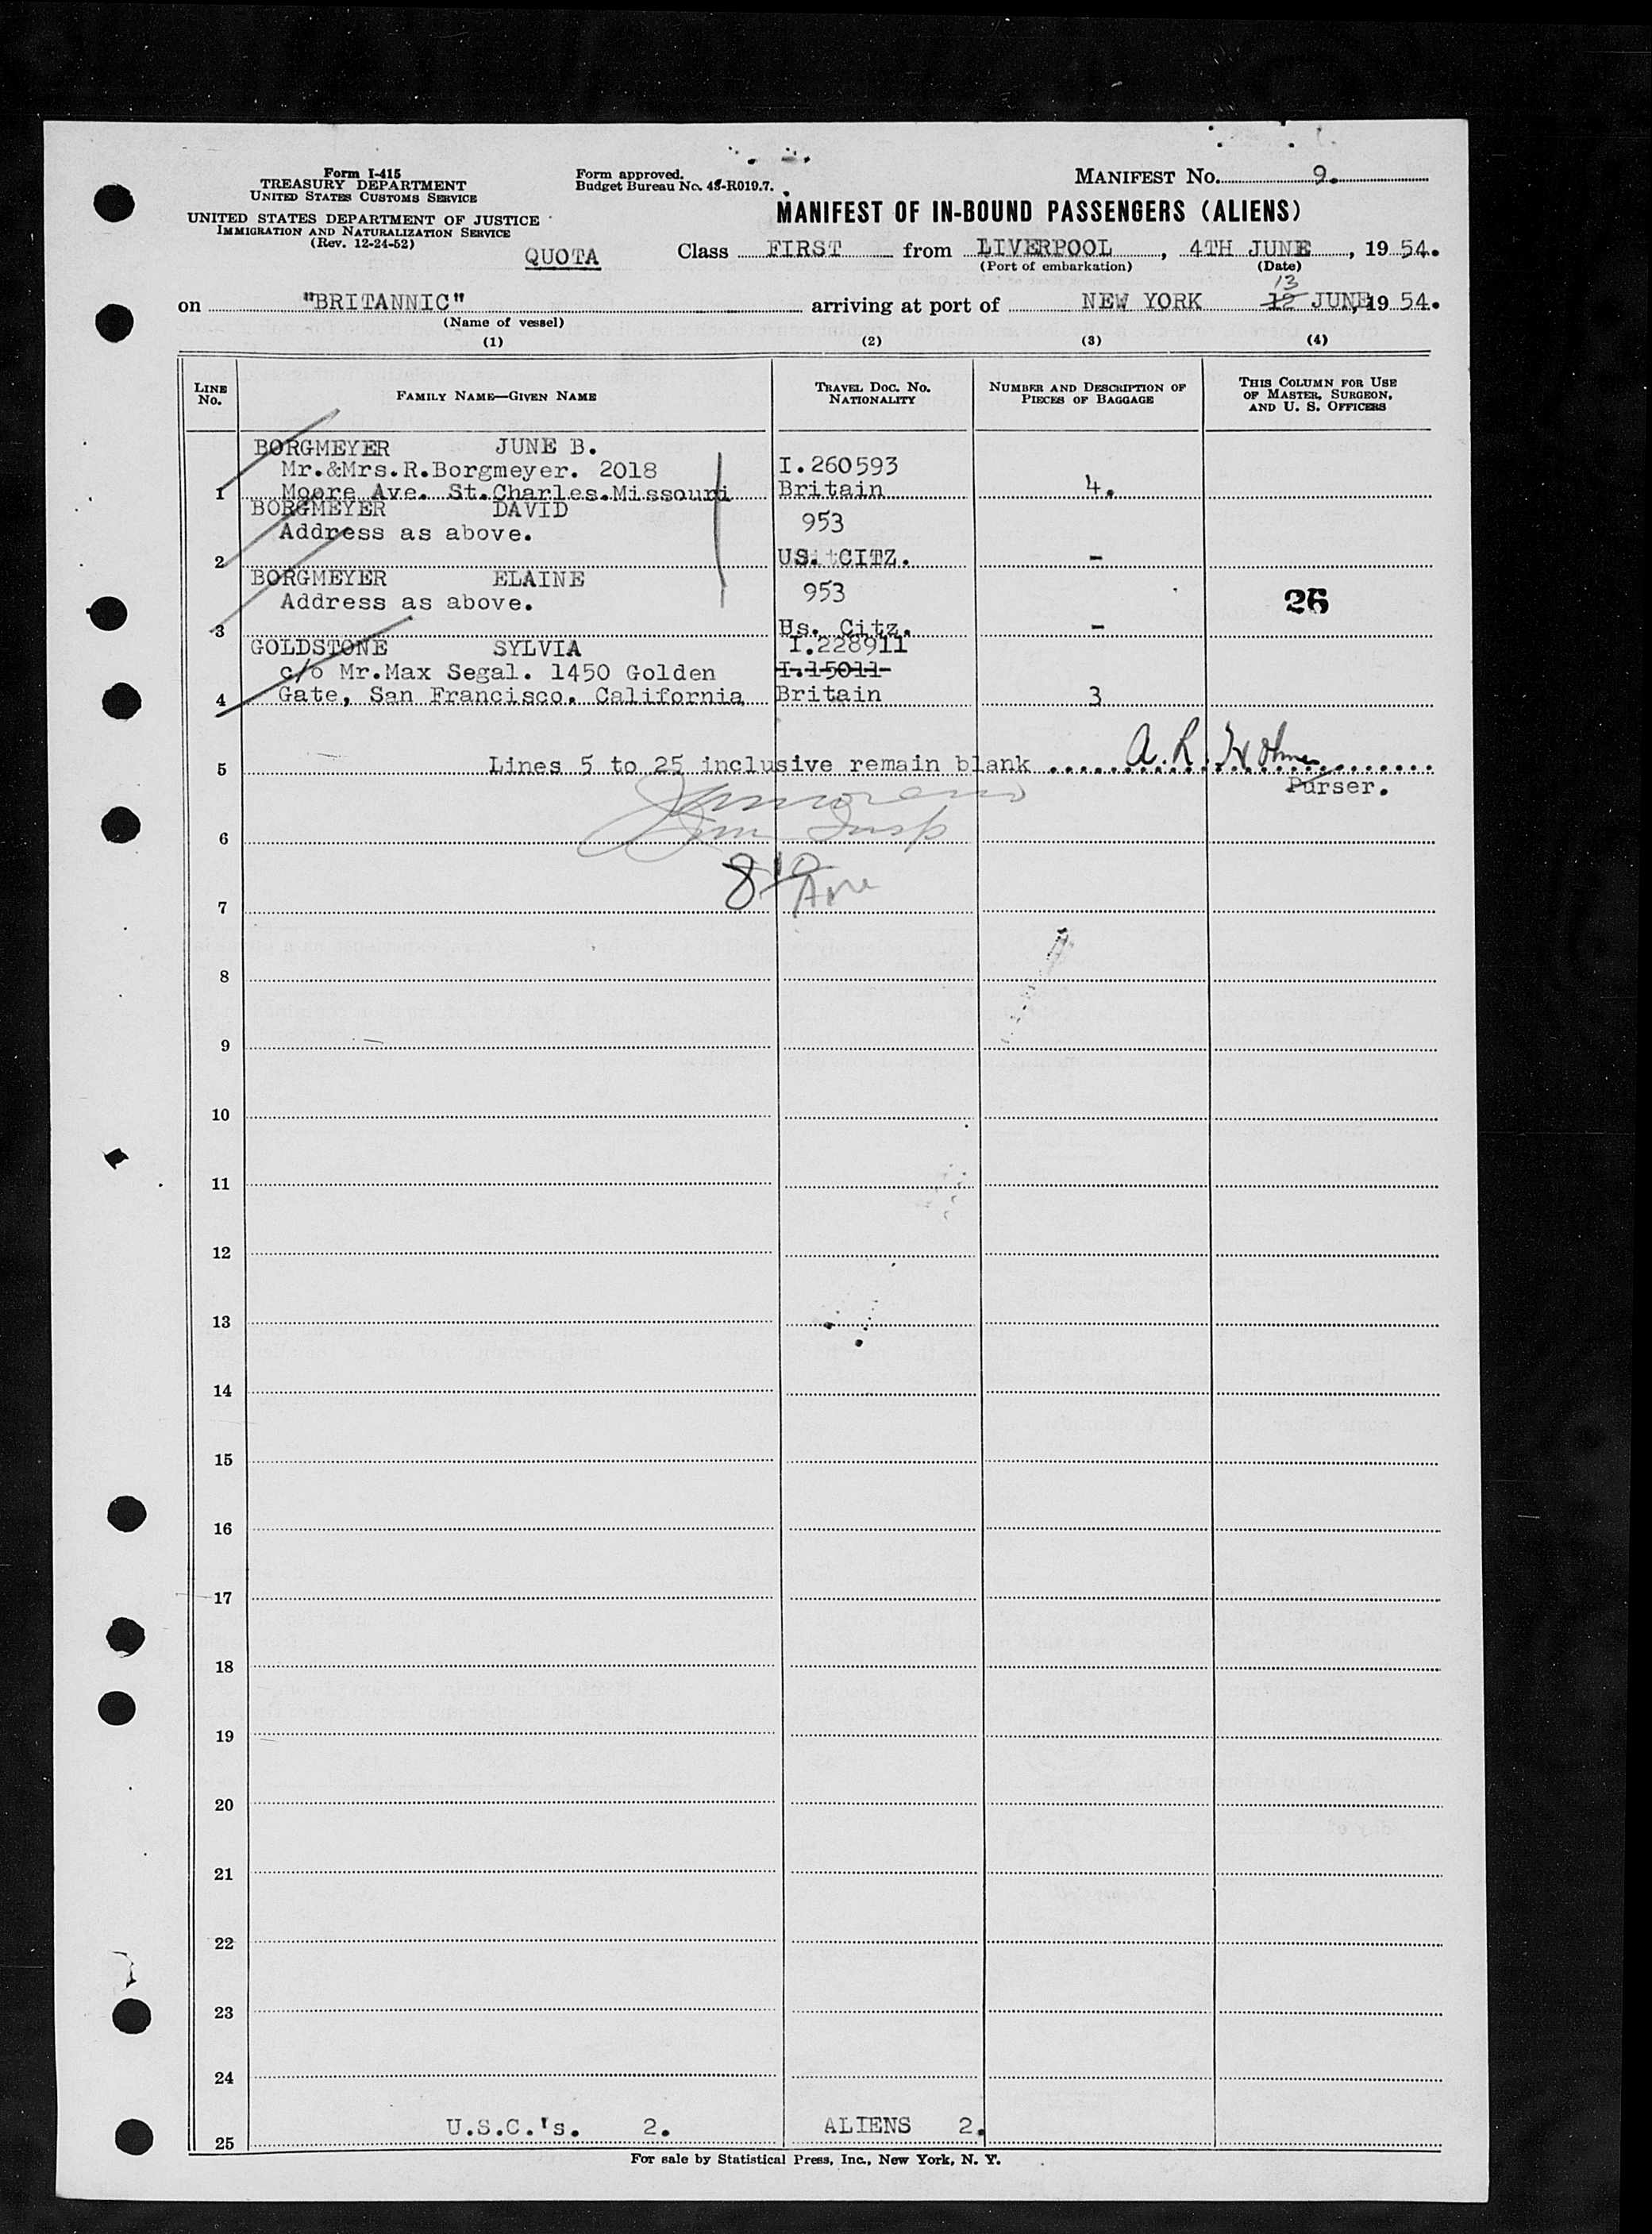 Form I-415
TREASURY DEPARTMENT
UNITED STATES CUSTOMS SERVICE
UNITED STATES DEPARTMENT OF JUSTICE
IMMIGRATION AND NATURALIZATION SERVICE
(Rev. 12-24-52)
Form approved.
Budget Bureau No. 43-R019.7.
MANIFEST No. 9.
MANIFEST OF IN-BOUND PASSENGERS (ALIENS)
QUOTA Class FIRST from LIVERPOOL, 4TH JUNE, 1954.
(Port of embarkation) (Date)
13
on "BRITANNIC" arriving at port of NEW YORK 12 JUNE, 1954.
(Name of vessel)
(1) (2) (3) (4)
LINE No. FAMILY NAME—GIVEN NAME TRAVEL DOC. No. NATIONALITY NUMBER AND DESCRIPTION OF PIECES OF BAGGAGE THIS COLUMN FOR USE OF MASTER, SURGEON, AND U. S. OFFICERS
BORGMEYER JUNE B.
Mr.&Mrs.R.Borgmeyer. 2018 I.260593
1 Moore Ave. St.Charles.Missouri Britain 4.
BORGMEYER DAVID 953
Address as above.
2 US. CITZ. -
BORGMEYER ELAINE 953
Address as above. 26
3 Us. Citz. -
GOLDSTONE SYLVIA I.228911
c/o Mr.Max Segal. 1450 Golden I.15011
4 Gate, San Francisco. California Britain 3
5 Lines 5 to 25 inclusive remain blank A. R.
Purser.
6 Imm Insp
7 8
8
9
10
11
12
13
14
15
16
17
18
19
20
21
22
23
24
25 U.S.C.'s. 2. ALIENS 2.
For sale by Statistical Press, Inc., New York, N. Y.